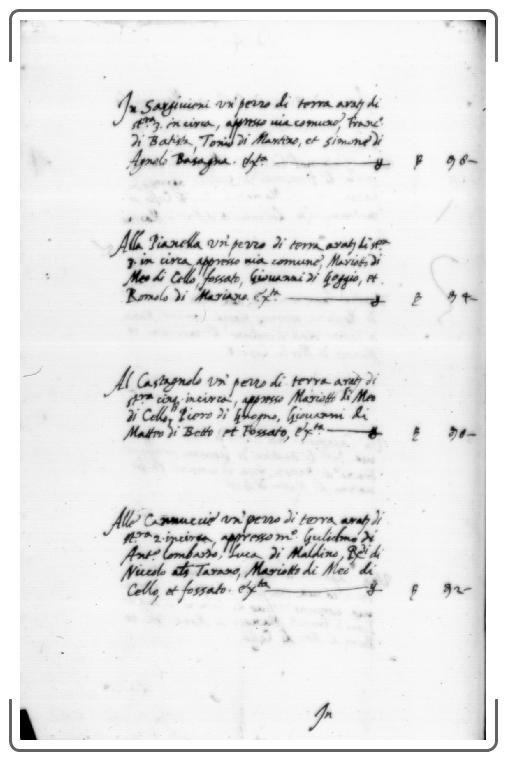 In Sargivieni un' pezzo di terra arat: di
st.ra 3. in circa, appresso via comune, Franc.
di Batista, Tonio di Martino, et Simone di
Agnolo Basagna. &c.ta
Alla Pianella un' pezzo di terra arat: di st.ra
3. in circa, appresso via comune, Mariott: di
Meo di Cello, fossato, Giovanni di Goggio, et
Romolo di Mariano &c.ta
Al Castagnolo un' pezzo di terra arat: di
st.ra cinq. incirca, appresso Mariotto di Meo
di Cello, Pierro di Giuogno, Giovanni di
Matteo di Betto et Fossato, &c.ta
Alle Cannuccie un' pezzo di terra arat: di
st.ra 2. incirca, appresso m.o Gulielmo di
Ant.o lombardo, Luca di Maldino, di
Niccolo als Tarano, Mariotto di Meo di
Cello, et fossato. &c.ta
In